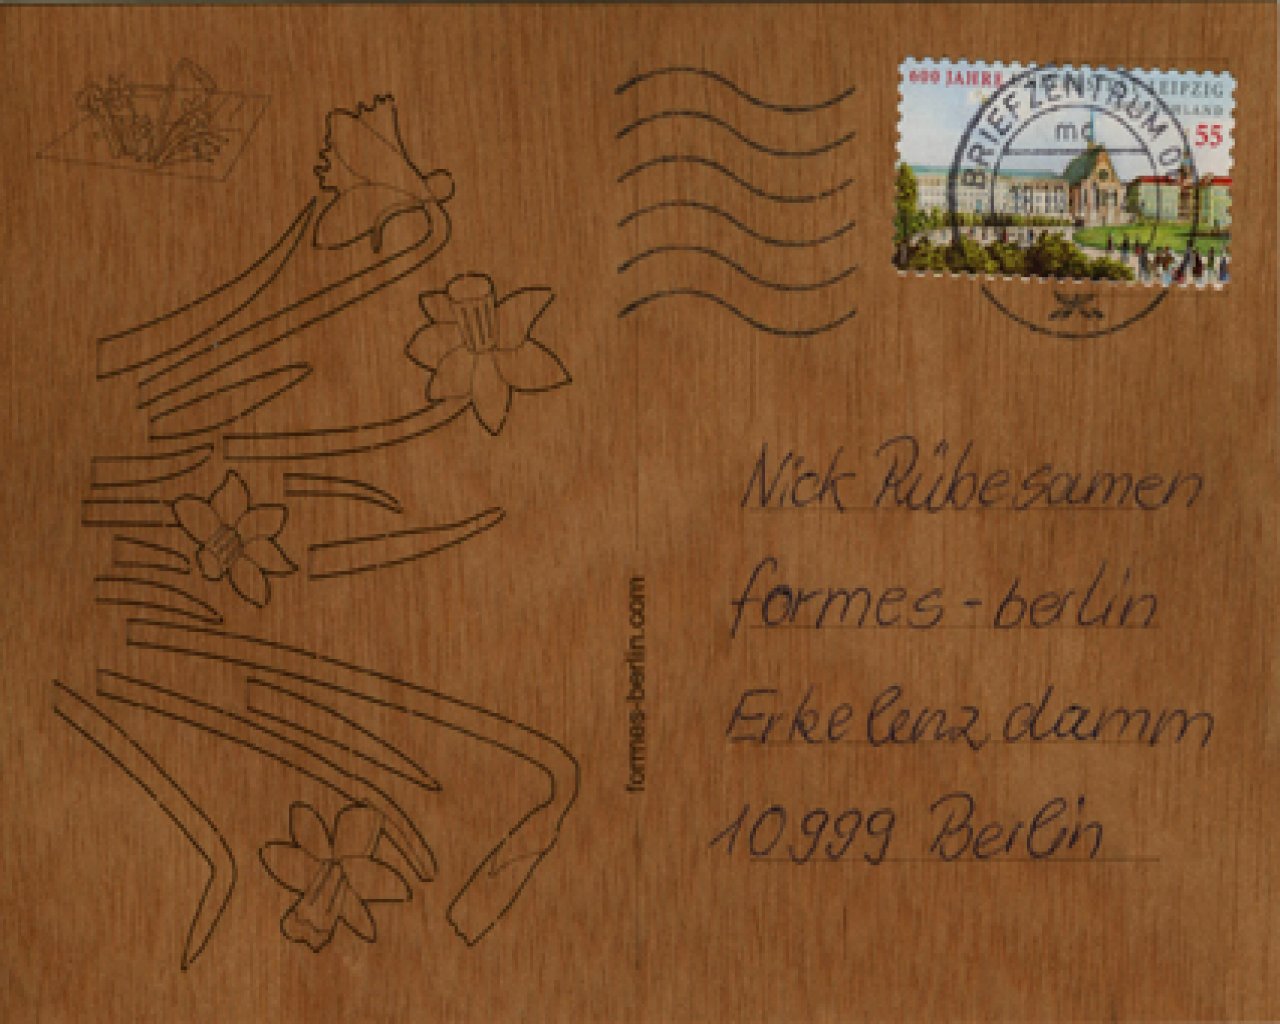 600 JAHRE LEIPZIG
55
BRIEFZENTRUM
mc
formes-berlin.com
Nick Rübesamen
formes-berlin
Erkelenzdamm
10999 Berlin